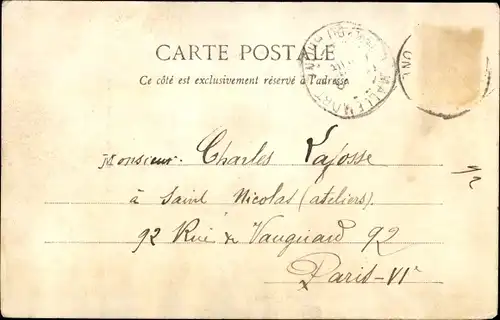 CARTE POSTALE
Ce côté est exclusivement réservé à l'adresse
MALLEMORT
Monsieur Charles Lafosse
à Saint Nicolas (ateliers)
92 Rue de Vaugirard 92
Paris-VIe